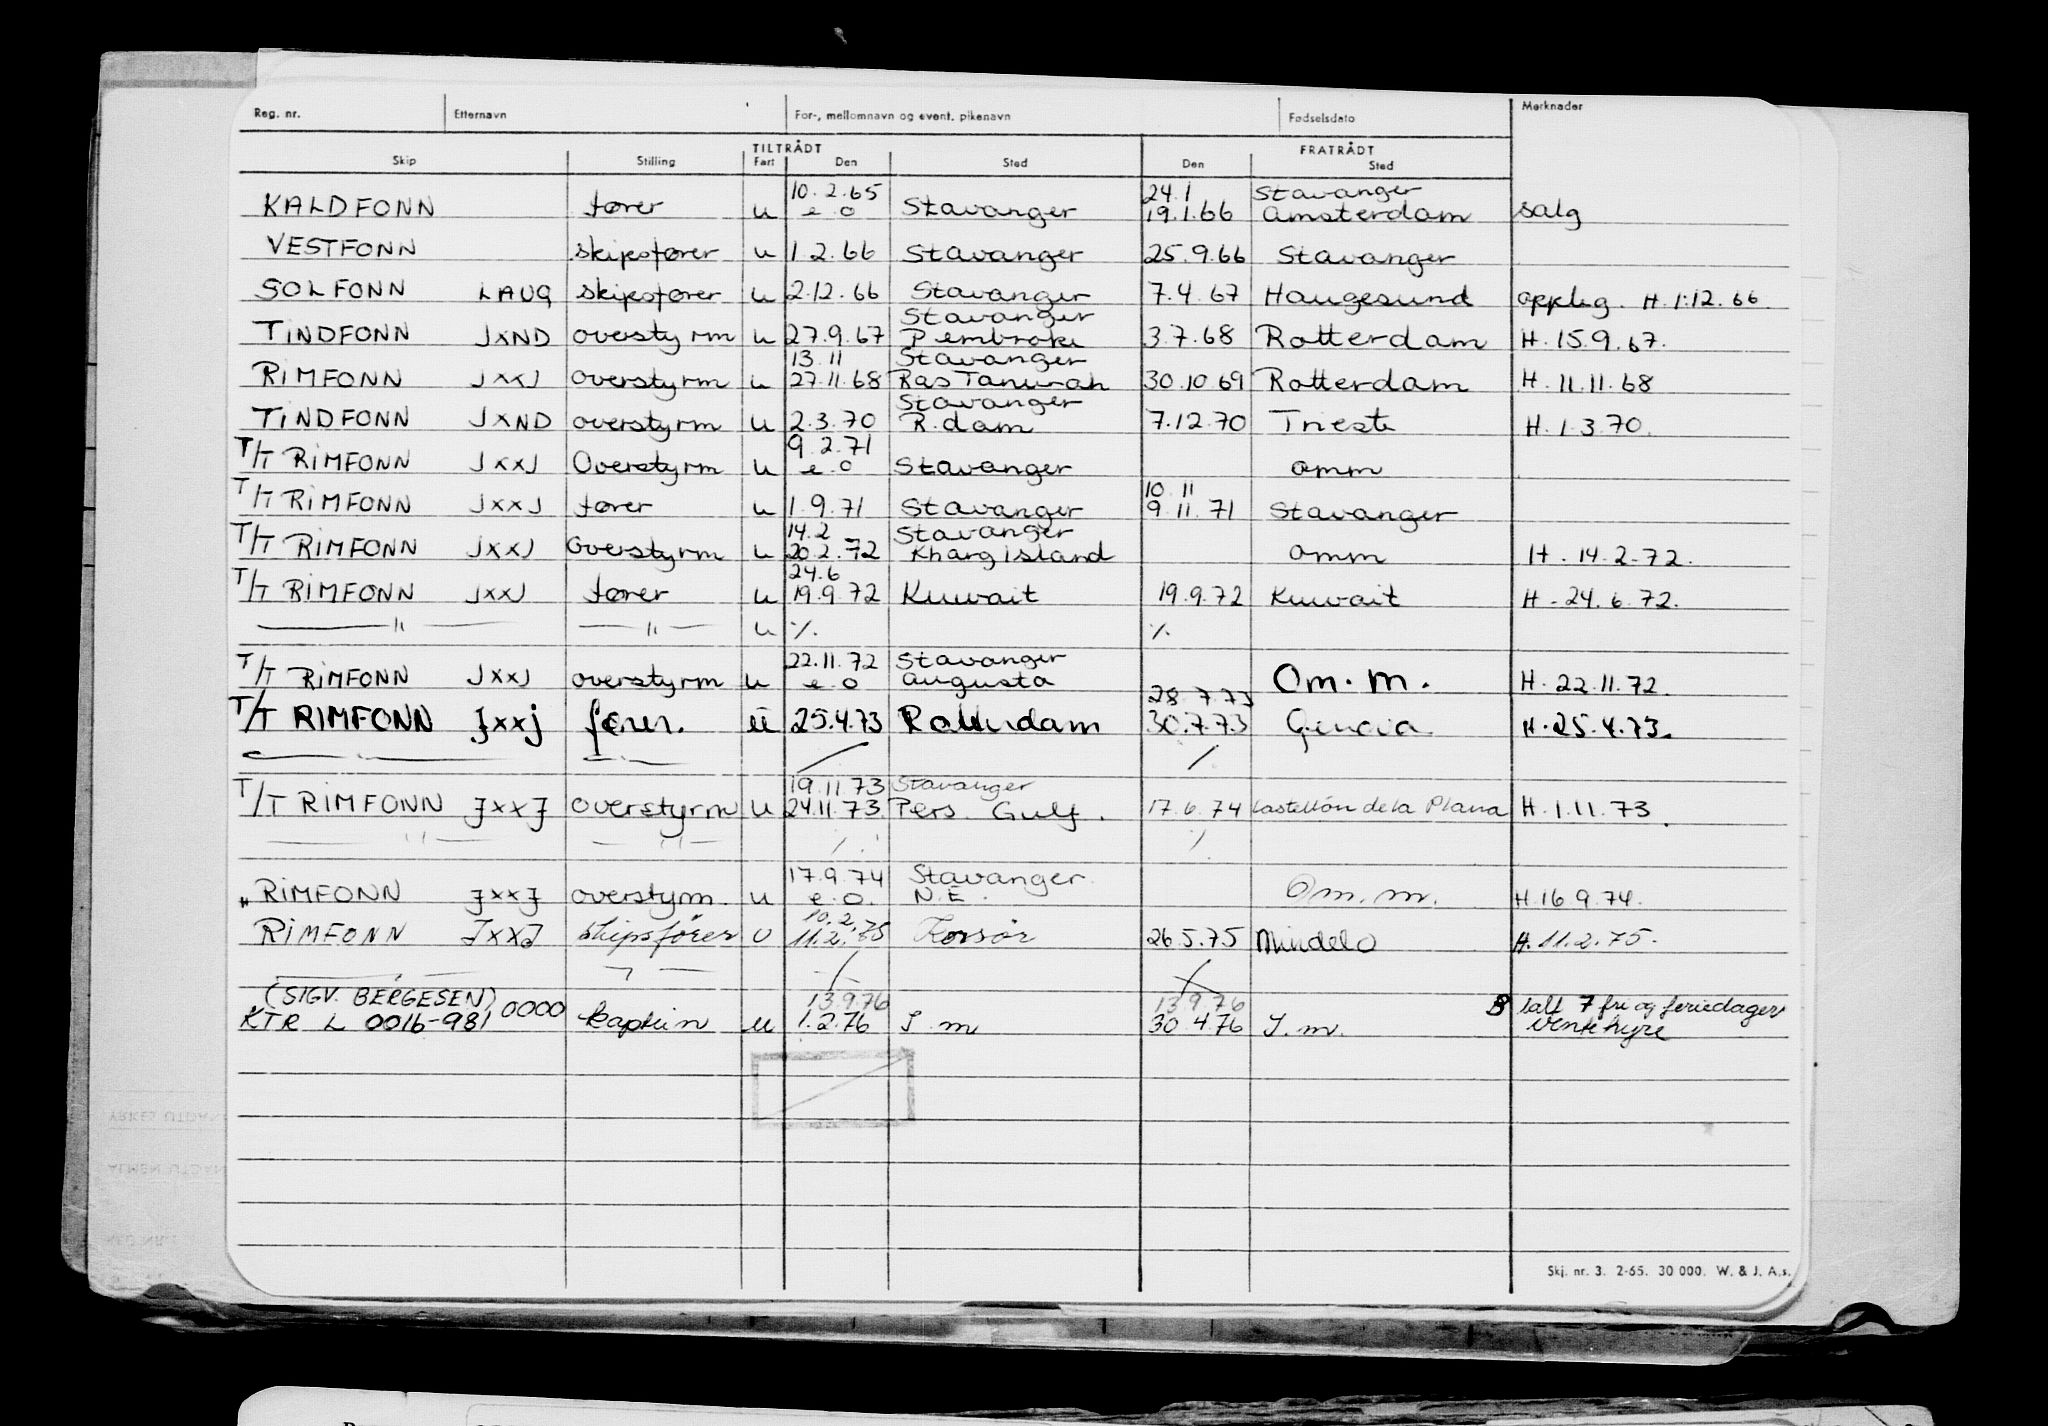 Reg. nr. Etternavn For-, mellomnavn og event. pikenavn Fødselsdato Merknader
TILTRÅDT FRATRÅDT
Skip Stilling Fart Den Sted Den Sted
10.2.65 24.1 Stavanger
KALDFONN fører u e.o Stavanger 19.1.66 Amsterdam salg
VESTFONN skipsfører u 1.2.66 Stavanger 25.9.66 Stavanger
SOLFONN LAUQ skipsfører u 2.12.66 Stavanger 7.4.67 Haugesund opplag. H.1.12.66.
Stavanger
TINDFONN JXND overstyrm u 27.9.67 Pembroke 3.7.68 Rotterdam H.15.9.67.
13.11 Stavanger
RIMFONN JXXJ overstyrm u 27.11.68 Ras Tanurah 30.10.69 Rotterdam H.11.11.68
Stavanger
TINDFONN JXND overstyrm u 2.3.70 R.dam 7.12.70 Trieste H.1.3.70.
9.2.71
T/T RIMFONN JXXJ Overstyrm u e.o Stavanger omm
10.11
T/T RIMFONN JXXJ fører u 1.9.71 Stavanger 9.11.71 Stavanger
14.2 Stavanger
T/T RIMFONN JXXJ Overstyrm u 20.2.72 Kharg island omm H.14.2.72.
24.6
T/T RIMFONN JXXJ fører u 19.9.72 Kuwait 19.9.72 Kuwait H-24.6.72.
— " — — " — u ⁒ ⁒
22.11.72 Stavanger
T/T RIMFONN JXXJ overstyrm u e.o Augusta Om.m. H.22.11.72.
28.7.73
T/T RIMFONN JXXJ fører. u 25.4.73 Rotterdam 30.7.73 Genova H.25.4.73.
19.11.73 Stavanger
T/T RIMFONN JXXJ overstyrm u 24.11.73. Pers. Gulf. 17.6.74 Castellón de la Plana H.1.11.73.
— " — — " — ⁒ ⁒
17.9.74 Stavanger.
" RIMFONN JXXJ overstyrm. u e.o. N.E. Om.m. H.16.9.74.
10.2.75
RIMFONN JXXJ skipsfører u 11.2.75 Korsør 26.5.75 Mindelo H.11.2.75.
(SIGV. BERGESEN) 0000 13.9.76 13.9.76 B 7 fri og feriedager
KTR L 0016-981 kaptein u 1.2.76 I.m 30.4.76 I.m. ventehyre
Skj. nr. 3. 2-65. 30 000. W. & J. A.s.